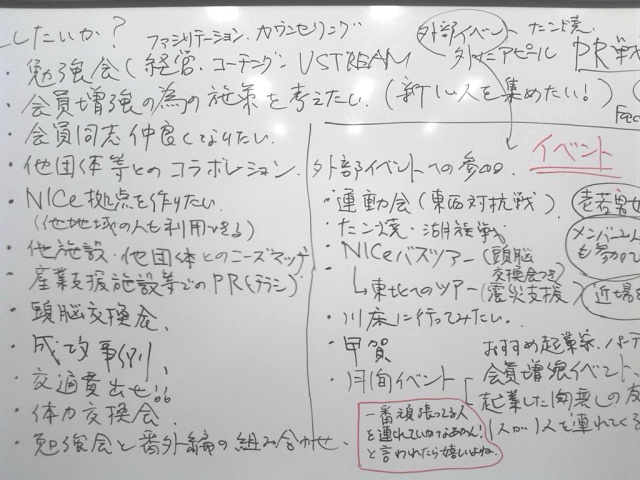 したいか?
ファシリテーション、カウンセリング
・勉強会(経営、コーチング、USTREAM
・会員増強の為の施策を考えたい。(新しい人を集めたい!)
・会員同志仲良くなりたい。
・他団体等とのコラボレーション、
・NICe拠点を作りたい
(他地域の人も利用できる)
・他施設・他団体とのニーズマッチ
・産業支援施設等でのPR(チラシ)
・頭脳交換会、
・成攻事例、
・交通費出せ!!
・体力交換会、
・勉強会と番外編の組み合わせ、
外部イベント
たこ焼
外にアピール
PR
外部イベントへの参加、
イベント
・運動会(東西対抗戦)、
老若男女
・たこ焼・
・NICeバスツアー(頭脳交換会つき)
→東北へのツアー(震災支援)
メンバー
も参加
近場
・川床に行ってみたい。
・甲賀
・月旬イベント
おすすめ起業家、パーテ
会員増強イベント、
起業した
1人が1人を連れてくる
一番頑張ってる人
を連れていかなあかん!
と言われたら嬉しいよね。